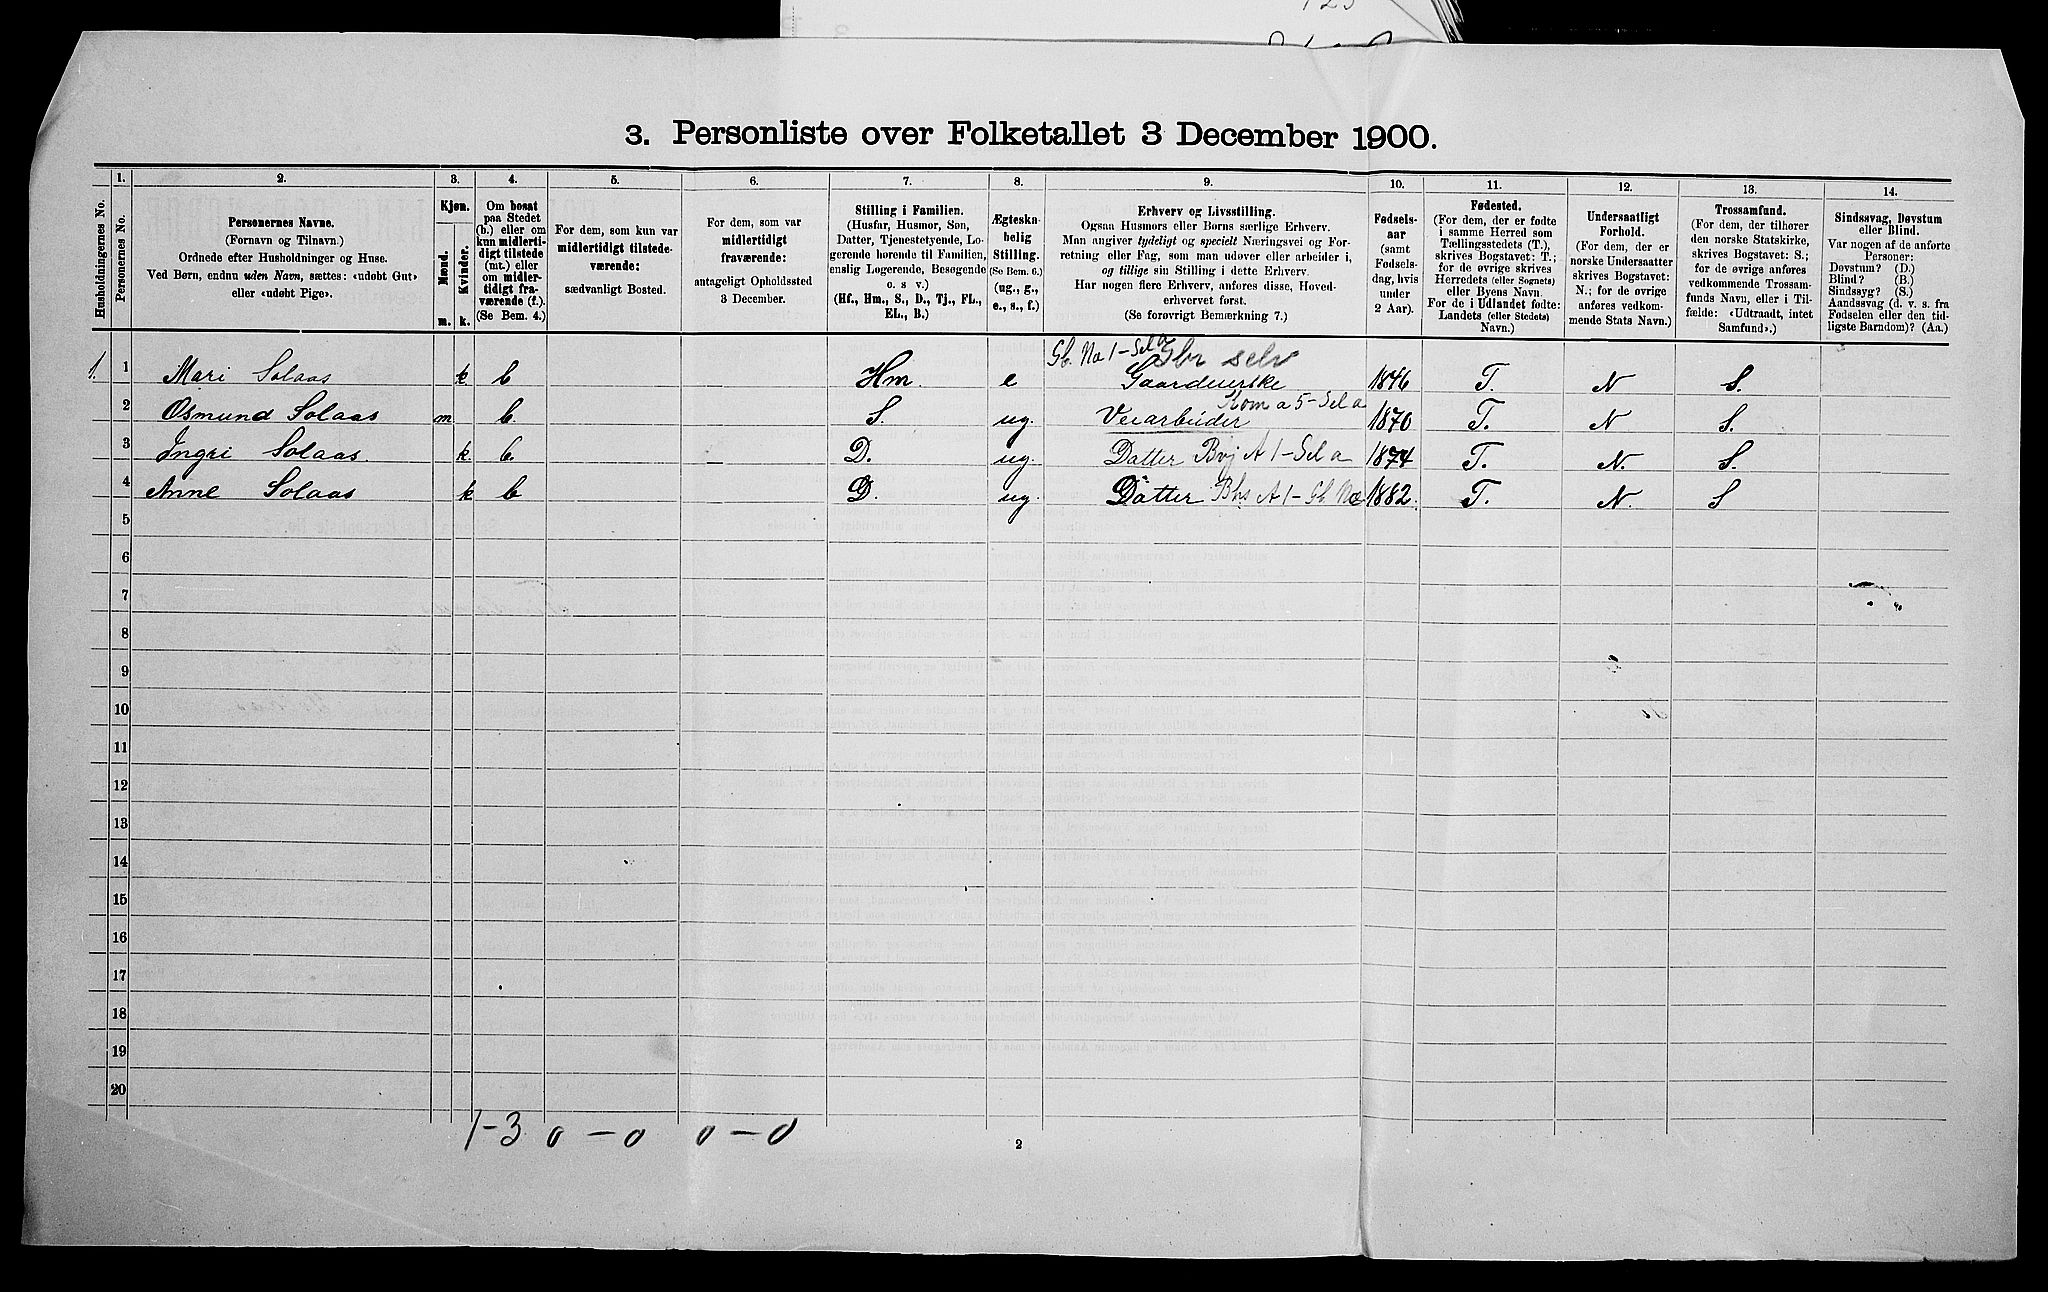 123
3. Personliste over Folketallet 3 December 1900.
1. 2. 3. 4. 5. 6. 7. 8. 9. 10. 11. 12. 13. 14.
Husholdningernes No.
Personernes No.
Personernes Navne.
(Fornavn og Tilnavn.)
Ordnede efter Husholdninger og Huse.
Ved Børn, endnu uden Navn, sættes: «udøbt Gut»
eller «udøbt Pige».
Kjøn.
Mænd.
Kvinder.
m. k.
Om bosat
paa Stedet
(b.) eller om
kun midlerti-
digt tilstede
(mt.) eller om
om midler-
tidigt fra-
værende (f.)
(Se Bem. 4.)
For dem, som kun var
midlertidigt tilstede-
værende:
sædvanligt Bosted.
For dem, som var
midlertidigt
fraværende:
antageligt Opholdssted
3 December.
Stilling i Familien.
(Husfar, Husmor, Søn,
Datter, Tjenestetyende, Lo-
gerende hørende til Familien,
enslig Logerende, Besøgende
o. s. v.)
(Hf., Hm., S., D., Tj., FL.,
EL., B.)
Ægteska-
belig
Stilling.
(Se Bem. 6.)
(ug., g.,
e., s., f.)
Erhverv og Livsstilling.
Ogsaa Husmors eller Børns særlige Erhverv.
Man angiver tydeligt og specielt Næringsvei og For-
retning eller Fag, som man udøver eller arbeider i,
og tillige sin Stilling i dette Erhverv.
Har nogen flere Erhverv, anføres disse, Hoved-
erhvervet først.
(Se forøvrigt Bemærkning 7.)
Fødsels-
aar
(samt
Fødsels-
dag, hvis
under
2 Aar).
Fødested.
(For dem, der er fødte
i samme Herred som
Tællingsstedets (T.),
skrives Bogstavet: T.;
for de øvrige skrives
Herredets (eller Sognets)
eller Byens Navn.
For de i Udlandet fødte:
Landets (eller Stedets)
Navn.)
Undersaatligt
Forhold.
(For dem, der er
norske Undersaatter
skrives Bogstavet:
N.; for de øvrige
anføres vedkom-
mende Stats Navn.)
Trossamfund.
(For dem, der tilhører
den norske Statskirke,
skrives Bogstavet: S.;
for de øvrige anføres
vedkommende Trossam-
funds Navn, eller i Til-
fælde: «Udtraadt, intet
Samfund».)
Sindssvag, Døvstum
eller Blind.
Var nogen af de anførte
Personer:
Døvstum? (D.)
Blind? (B.)
Sindssyg? (S.)
Aandssvag (d. v. s. fra
Fødselen eller den tid-
ligste Barndom)? (Aa.)
Gb. Na 1 - Sel a Gbr selv
1. 1 Mari Solaas k b Hm e Gaardmerske 1846 T. N S.
Kom a 5 - Sel a
2 Osmund Solaas m b. S. ug. Veiarbeider 1870 T. N S.
3 Ingri Solaas k. b. D. ug. Datter Bvj A 1 - Sel a 1874 T. N. S.
4 Anne Solaas k b D. ug. Datter Bhs A 1 - Gb. Na 1882. T. N. S
5
6
7
8
9
10
11
12
13
14
15
16
17
18
19
20
1-3 0 - 0 0 - 0
2